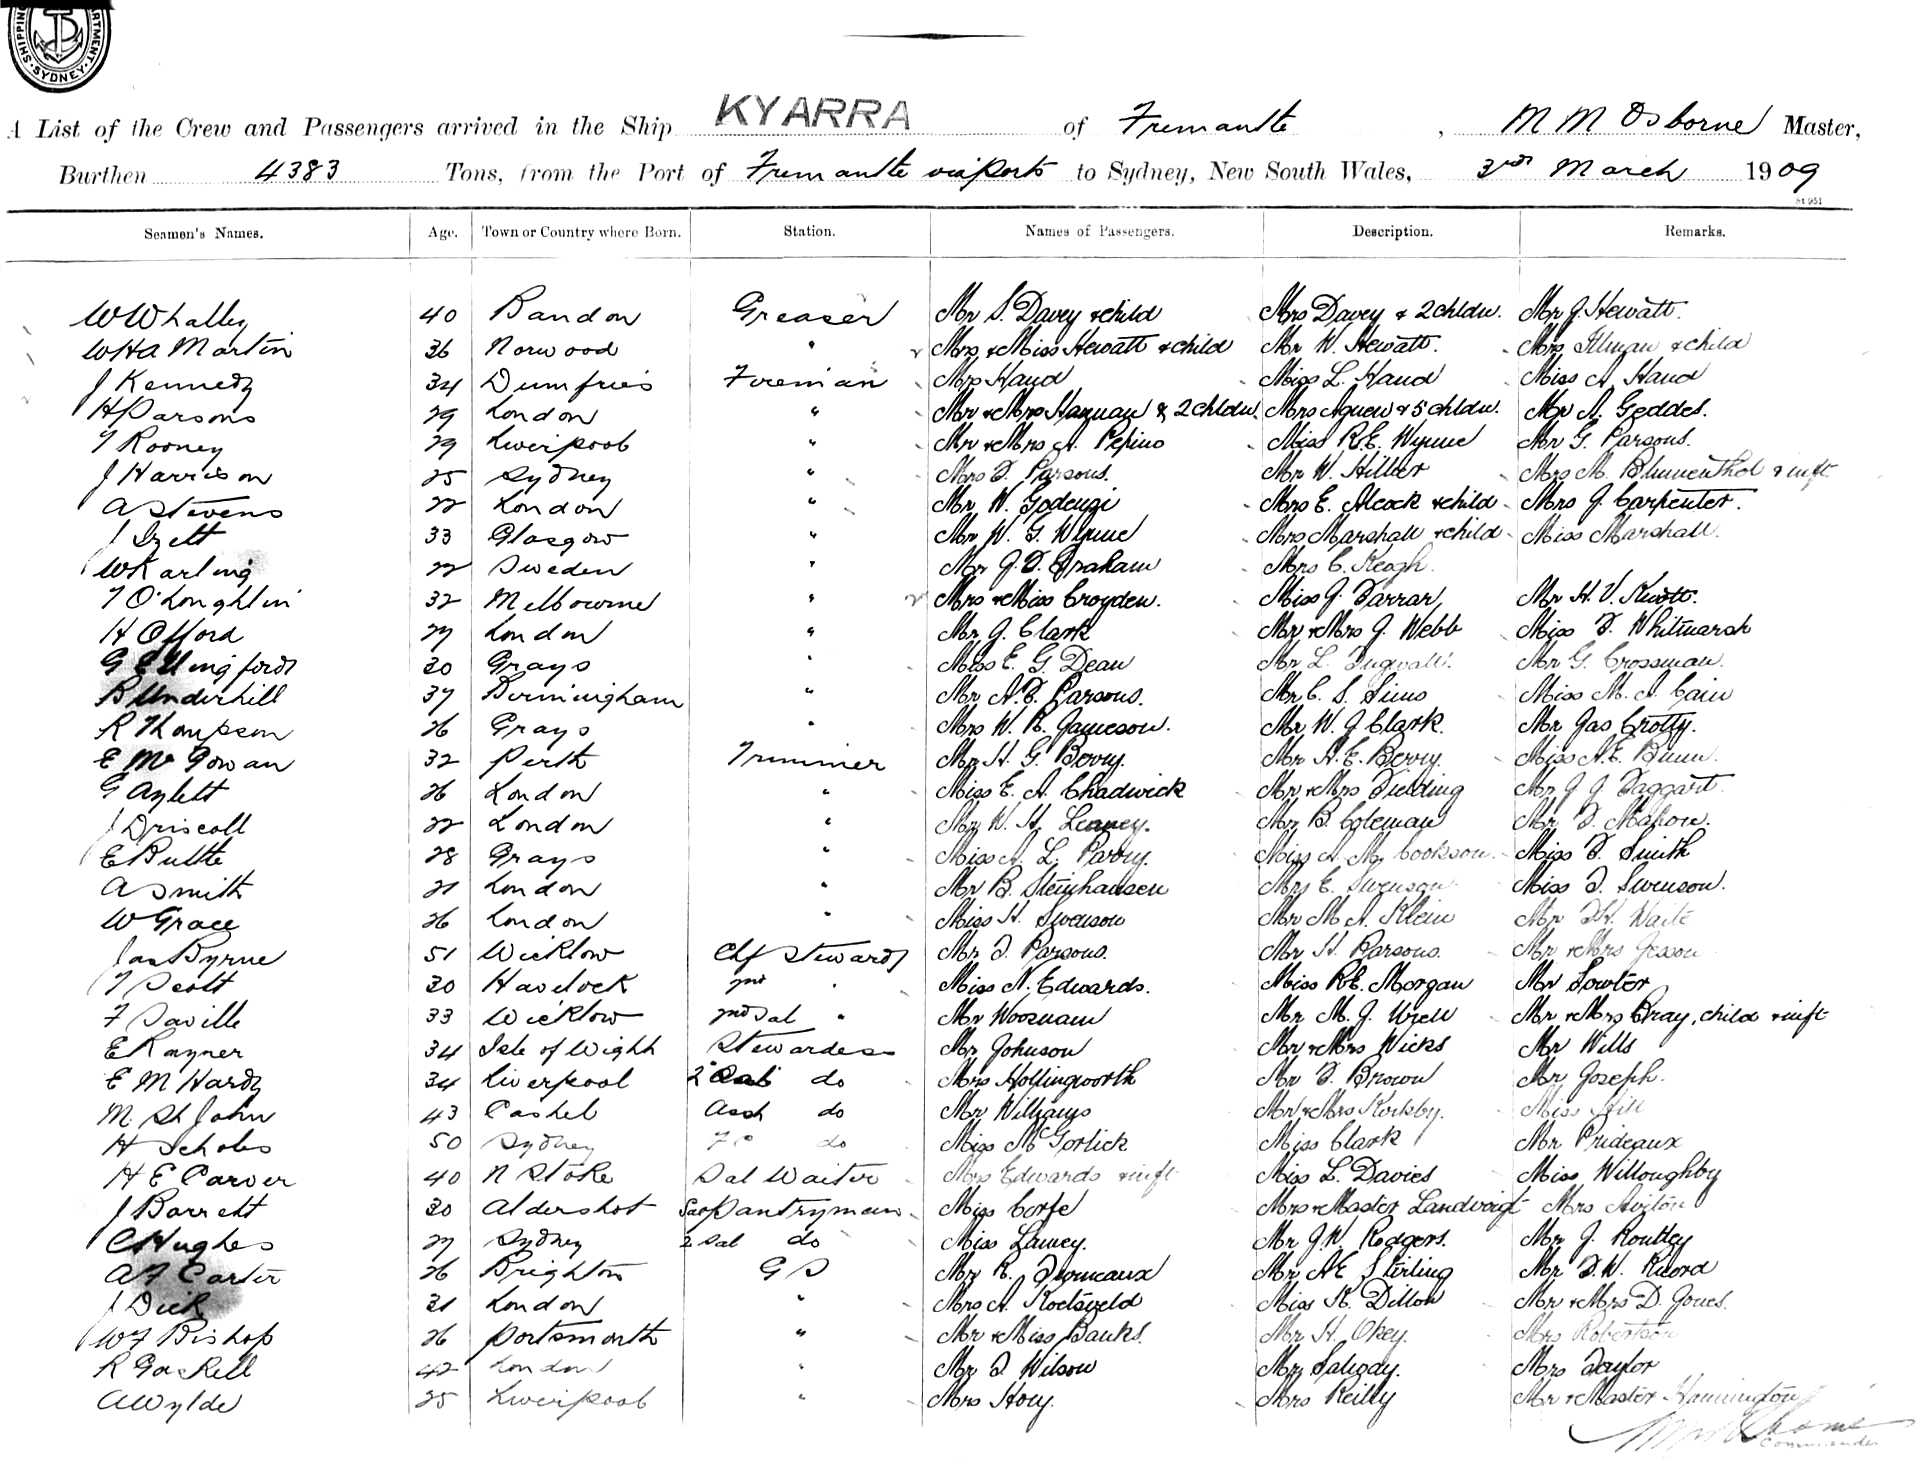 SHIPPING DEPARTMENT SYDNEY
A List of the Crew and Passengers arrived in the Ship KYARRA of Fremantle, M M Osborne Master,
Burthen 4383 Tons, from the Port of Fremantle via ports to Sydney, New South Wales, 3rd March 1909
St 951
Seamen's Names. Age. Town or Country where Born. Station. Names of Passengers. Description. Remarks.
W Whalley 40 Bandon Greaser Mr S. Davey & child Mrs Davey & 2 chldn. Mr J. Hewatt.
W H A Martin 36 Norwood " Mrs & Miss Hewatt & child Mr W. Hewatt. Mrs Illman & child
J Kennedy 34 Dumfries Fireman Mrs Hand Miss L. Hand Miss A Hand
H Parsons 29 London " Mr & Mrs & 2 chldn. Mrs Agnew & 5 chldn. Mr A. Geddes.
T Rooney 29 Liverpool " Mr & Mrs A. Pepino Miss R.E. Wynne Mr G. Parsons.
J Harrison 25 Sydney " Mrs F. Parsons. Mr W. Hiller Mrs M. Blumenthal & inft
A Stevens 22 London " Mr W. Mrs E. Alcock & child Mrs J. Carpenter.
J Izett 33 Glasgow " Mr W. G. Wynne Mrs Marshall & child Miss Marshall.
W Karling 22 Sweden " Mr J. F. Graham Mrs C. Keogh.
T O'Loughlin 32 Melbourne " Mrs & Miss Croyden. Miss J. Farrar Mr H. V. Knott.
H Offord 27 London " Mr J. Clark Mr & Mrs J. Webb Miss F. Whitmarsh
G E 20 Grays " Miss E. G. Dean Mr L. Mr G. Crossman.
B Underhill 37 Birmingham " Mr A. F. Parsons. Mr C. S. Sims Miss M. A. Cain
R Thompson 26 Grays " Mrs W. R. Jameson. Mr W. J. Clark. Mr Jas Crotty.
E McGowan 32 Perth Trimmer Mr H. G. Berry. Mr A. E. Berry. Miss A.E. Bunn.
G Aylett 26 London " Miss E. A. Chadwick Mr & Mrs Fielding Mr J. J. Taggart.
J Driscoll 22 London " Mr W. H. Leaney. Mr B. Coleman Mr F. Mahon.
E Bultte 28 Grays " Miss A. L. Parry. Miss A. M. Cookson. Miss F. Smith
A Smith 21 London " Mr B. Steinhausen Mrs E. Swenson Miss F. Swenson.
W Grace 26 London " Miss H. Swenson Mr M. A. Klein Mr F.H. Waite
Jas Byrne 51 Wicklow Chf Steward Mr F. Parsons. Mr H. Parsons. Mr & Mrs Jesson
T Scott 30 Havelock 2nd " Miss N. Edwards. Miss R.E. Morgan Mr Sowter
F Saville 33 Wicklow 2nd Sal " Mr Woosnam Mr M. J. Mr & Mrs Bray, child & inft
E Rayner 34 Isle of Wight Stewardess Mr Johnson Mr & Mrs Wicks Mr Wills
E M Hardy 34 Liverpool 2 Sal do Mrs Hollingworth Mr F. Brown Mr Joseph.
M. St John 43 Cashel Asst do Mr Williams Mr & Mrs Miss Hill
H Scholes 50 Sydney do Miss McGorlick Miss Clark Mr Prideaux
H E Carver 40 N Stoke Sal Waiter Mrs Edwards & inft Miss L. Davies Miss Willoughby
J Barrett 30 Aldershot Pantryman Miss Corfe Mrs & Master Landvoigt Mrs
C Hughes 27 Sydney 2 Sal do Miss Mr J.W. Rodgers. Mr J. Routley
A F Carter 26 Brighton G S Mr R. Mr A E Stirling Mr F.W.
J Dick 31 London " Mrs A. Koetsveld Miss K. Dillon Mr & Mrs D. Jones.
W F Bishop 26 Portsmouth " Mr & Miss Banks. Mr H. Okey. Mrs Robertson
R Gaskell 42 London " Mr F. Wilson Mr Mrs Taylor
A Wylde 25 Liverpool " Mrs Hoey. Mrs Reilly Mr & Master Hannington
Commander